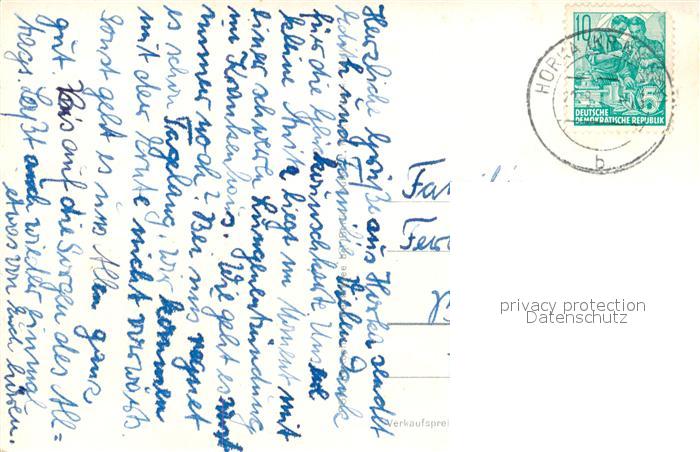 Herzliche Grüße aus Horka sendet
Edith und Familie. Vielen Dank
für die Glückwunschkarte. Unsere
kleine Anita liegt im Moment mit
einer schweren Lungenentzündung
im Krankenhaus. Wie geht es
immer noch? Bei uns regnet
es schon Tagelang, wir kommen
mit der Ernte nicht vorwärts.
Sonst geht es uns Allen ganz
gut. bis auf die Sorgen des All=
tags. Laßt auch wieder einmal
etwas von Euch hören.
Fa
Fer
Verkaufsprei
10
5
DEUTSCHE
DEMOKRATISCHE REPUBLIK
HORKA (KR
b
privacy protection
Datenschutz